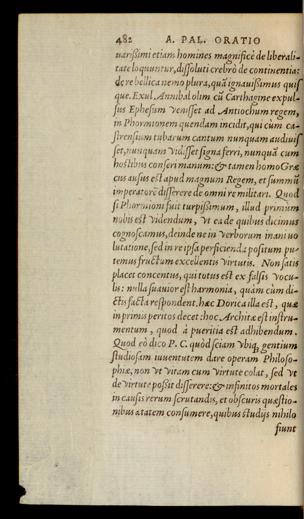 482 A. PAL. ORATIO
uarißimi etiam homines magnificè de liberali-
tate loquuntur, dissoluti crebrò de continentia:
de re bellica nemo plura, quàm ignauißimus quis
que. Exul Annibal olim cũ Carthagine expul-
sus Ephesum venisset ad Antiochum regem,
in Phormionem quendam incidit, qui cùm ca-
strensium tubarum cantum nunquam audiuis
set, nunquam vidisset signa ferri, nunquã cum
hostibus conseri manum: & tamen homo Græ
cus ausus est apud magnum Regem, et summũ
imperatorẽ disserere de omni re militari. Quod
si Phormioni fuit turpißimum, illud primùm
nobis est videndum, vt ea de quibus dicimus
cognoscamus, deinde ne in verborum inani vo
lutatione, sed in re ipsa perficienda positum pu-
temus fructum excellentis virtutis. Non satis
placet concentus, qui totus est ex falsis vocu-
lis: nulla suauior est harmonia, quàm cùm di-
ctis facta respondent. hæc Dorica illa est, quæ
in primis peritos decet: hoc Architæ est instru-
mentum, quod à pueritia est adhibendum.
Quod eò dico P. C. quòd sciam vbiq, gentium
studiosam iuuentutem dare operam Philoso-
phiæ, non vt vitam cum virtute colat, sed vt
de virtute poßit disserere: & infinitos mortales
in causis rerum scrutandis, et obscuris quæstio-
nibus ætatem consumere, quibus studijs nihilo
fiunt